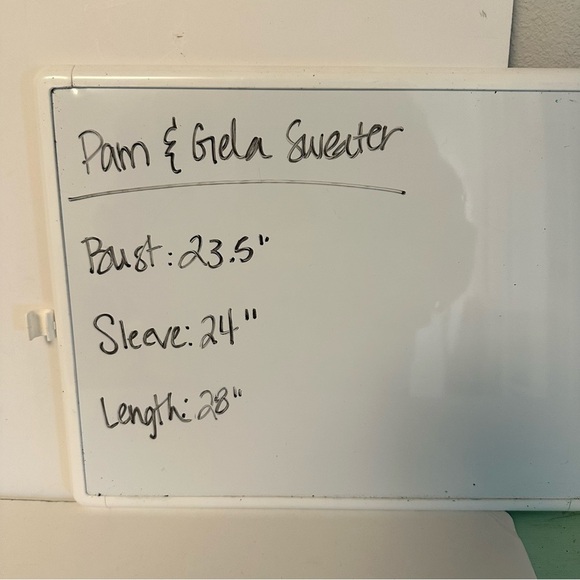 Pam & Gela Sweater
Bust: 23.5"
Sleeve: 24"
Length: 28"